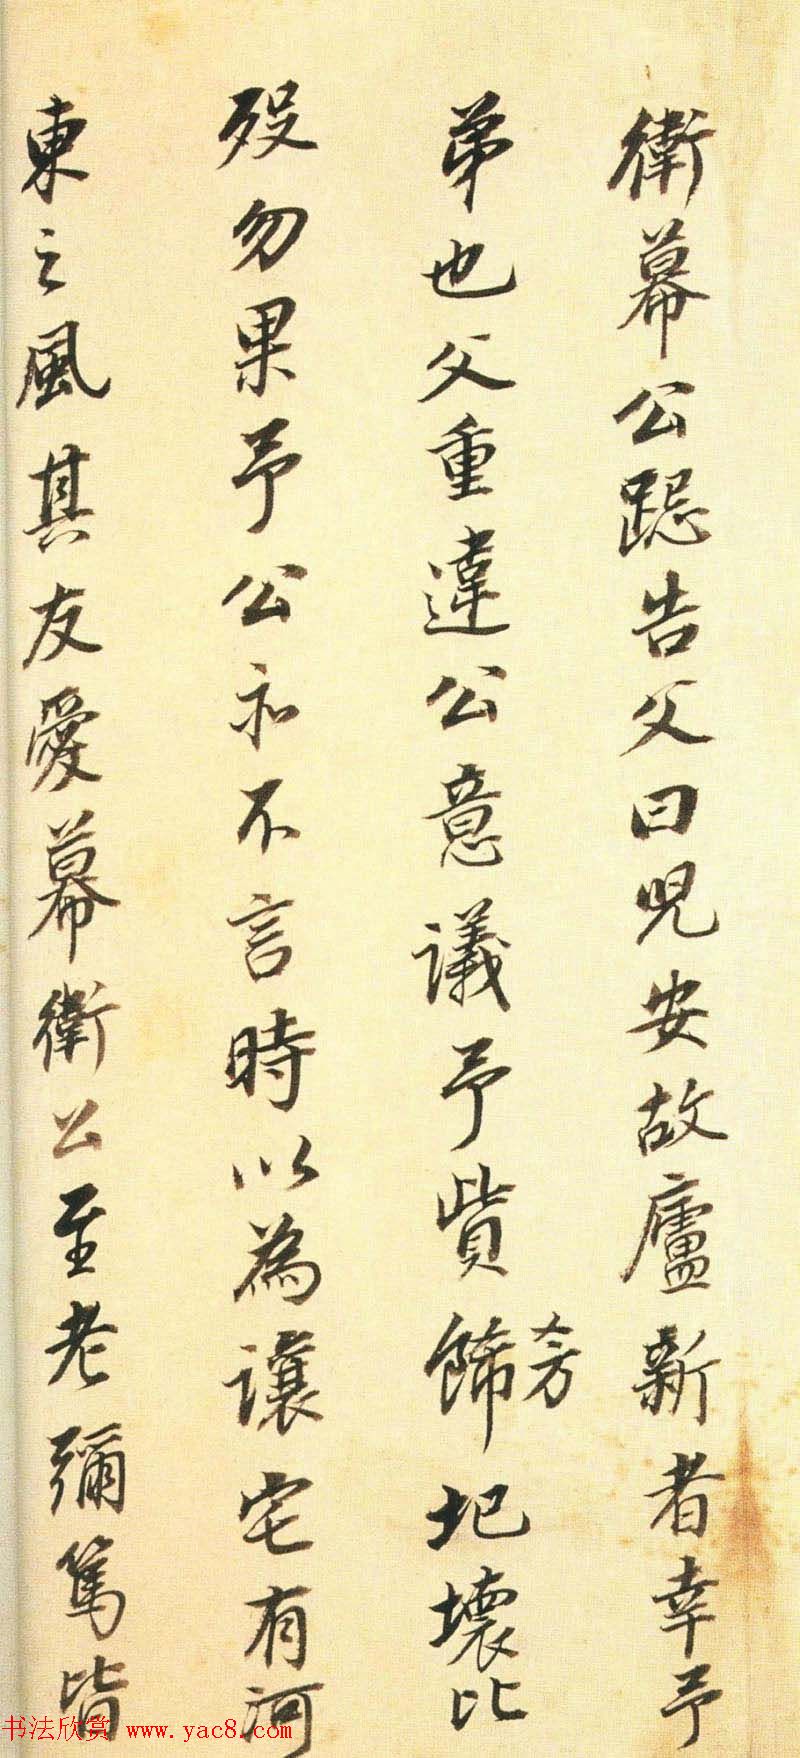 衛幕公跽告父曰兒安故廬新者幸予
弟也父重違公意議予貲餙旁圮壞比
歿勿果予公亦不言時以為讓宅有河
東之風其友愛幕衛公至老彌篤皆
书法欣赏 www.yac8.com